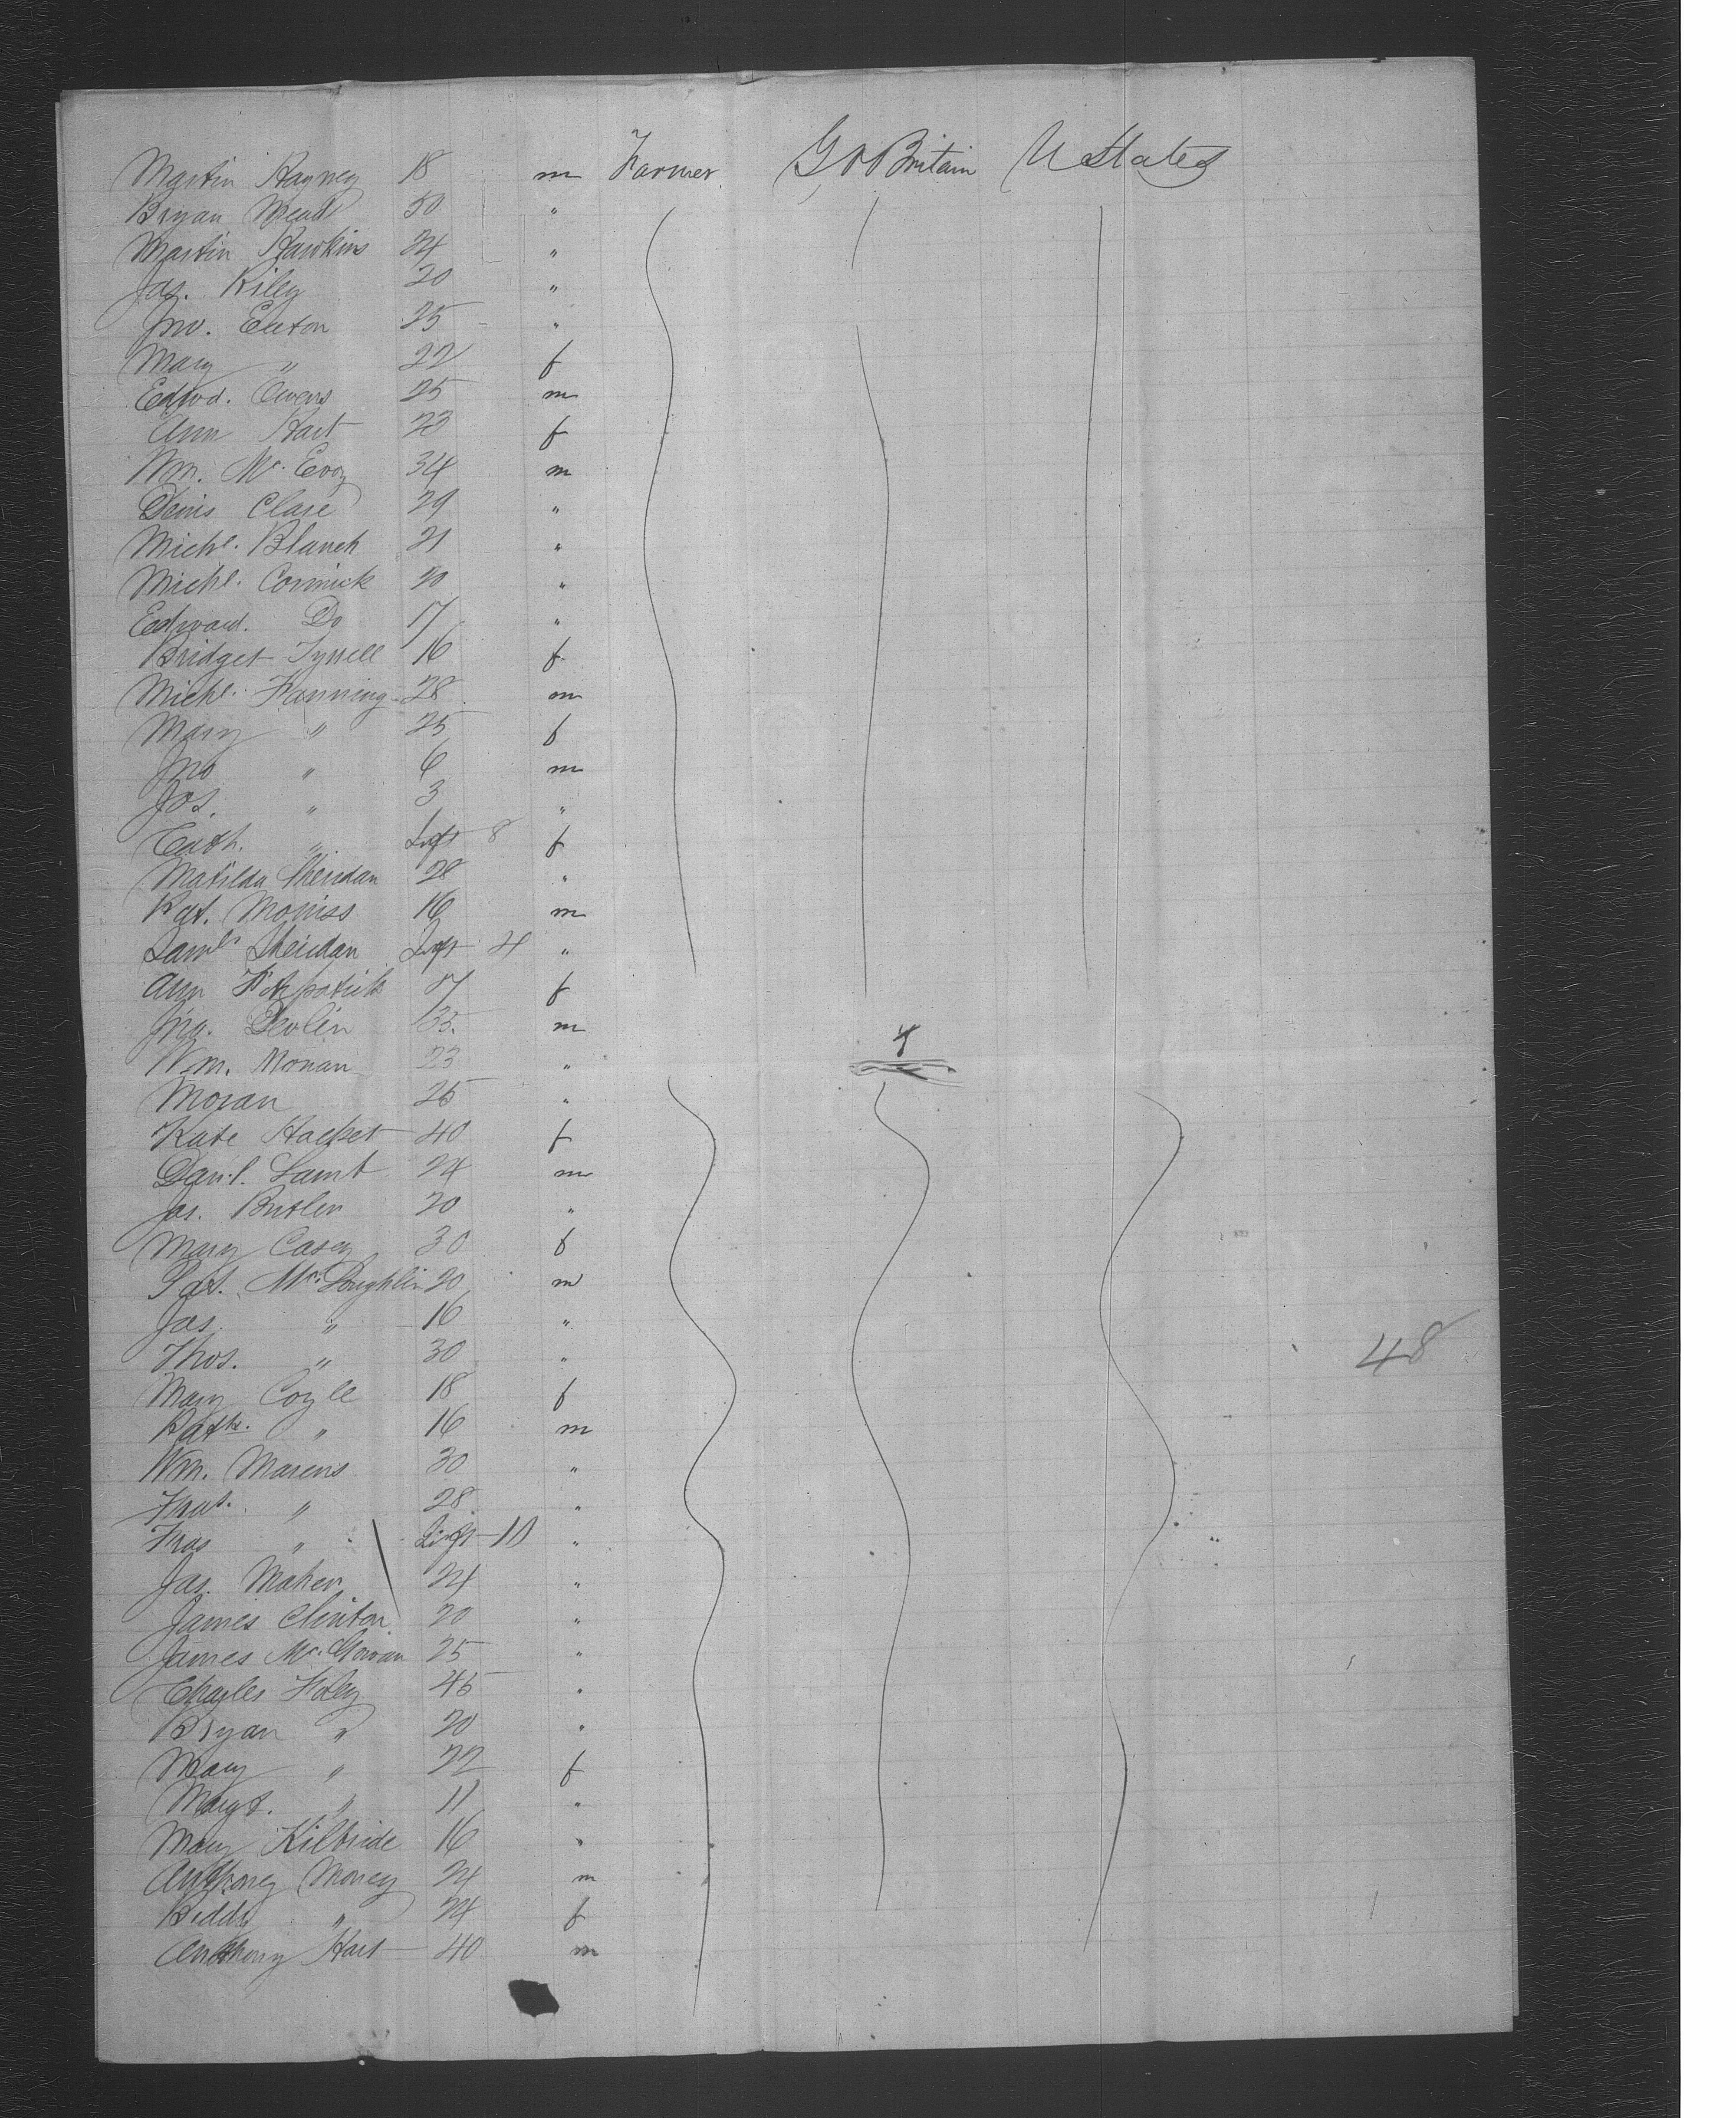 Martin Hayney 18 m Farmer Gt Britain U States
Bryan Mead 50 "
Martin Hawkins 24 "
Jas. Riley 20 "
Jno. Eaton 25 "
Mary " 22 f
Edwd. Owens 25 m
Ann Hart 23 f
Wm. Mc. Evoy 34 m
Denis Clare 29 "
Michl. Blanch 21 "
Michl. Cormick 20 "
Edward. Do 17 "
Bridget Tyrrell 16 f
Michl. Fanning 28 m
Mary " 25 f
Jno " 6 m
Jos. " 3 "
Cath. " Inft 8 f
Matilda Sheridan 28 "
Pat. Morriss 16 m
Saml Sheridan Inft 4 "
Ann Fitzpatrick 17 f
Jno. Devlin 35 m
Wm. Monan 23 "
Moran 25 "
Kate Hacket 40 f
Danl. Lamb 24 m
Jas. Butler 20 "
Mary Casey 30 f
Pat. Mc. Loughlin 20 m
Jas. " 16 "
Thos. " 30 " 48
Mary Coyle 18 f
Patk. " 16 m
Wm. Marens 30 "
Fras. " 28 "
Fras " Inft 10 "
Jas. Maher 24 "
James Clinton 20 "
James Mc. Gowan 25 "
Charles Foley 45 "
Bryan " 20 "
Mary " 22 f
Margt. " 11 "
Mary Kilbride 16 "
Anthony Money 24 m
Biddy " 24 f
Anthony Hart 40 m